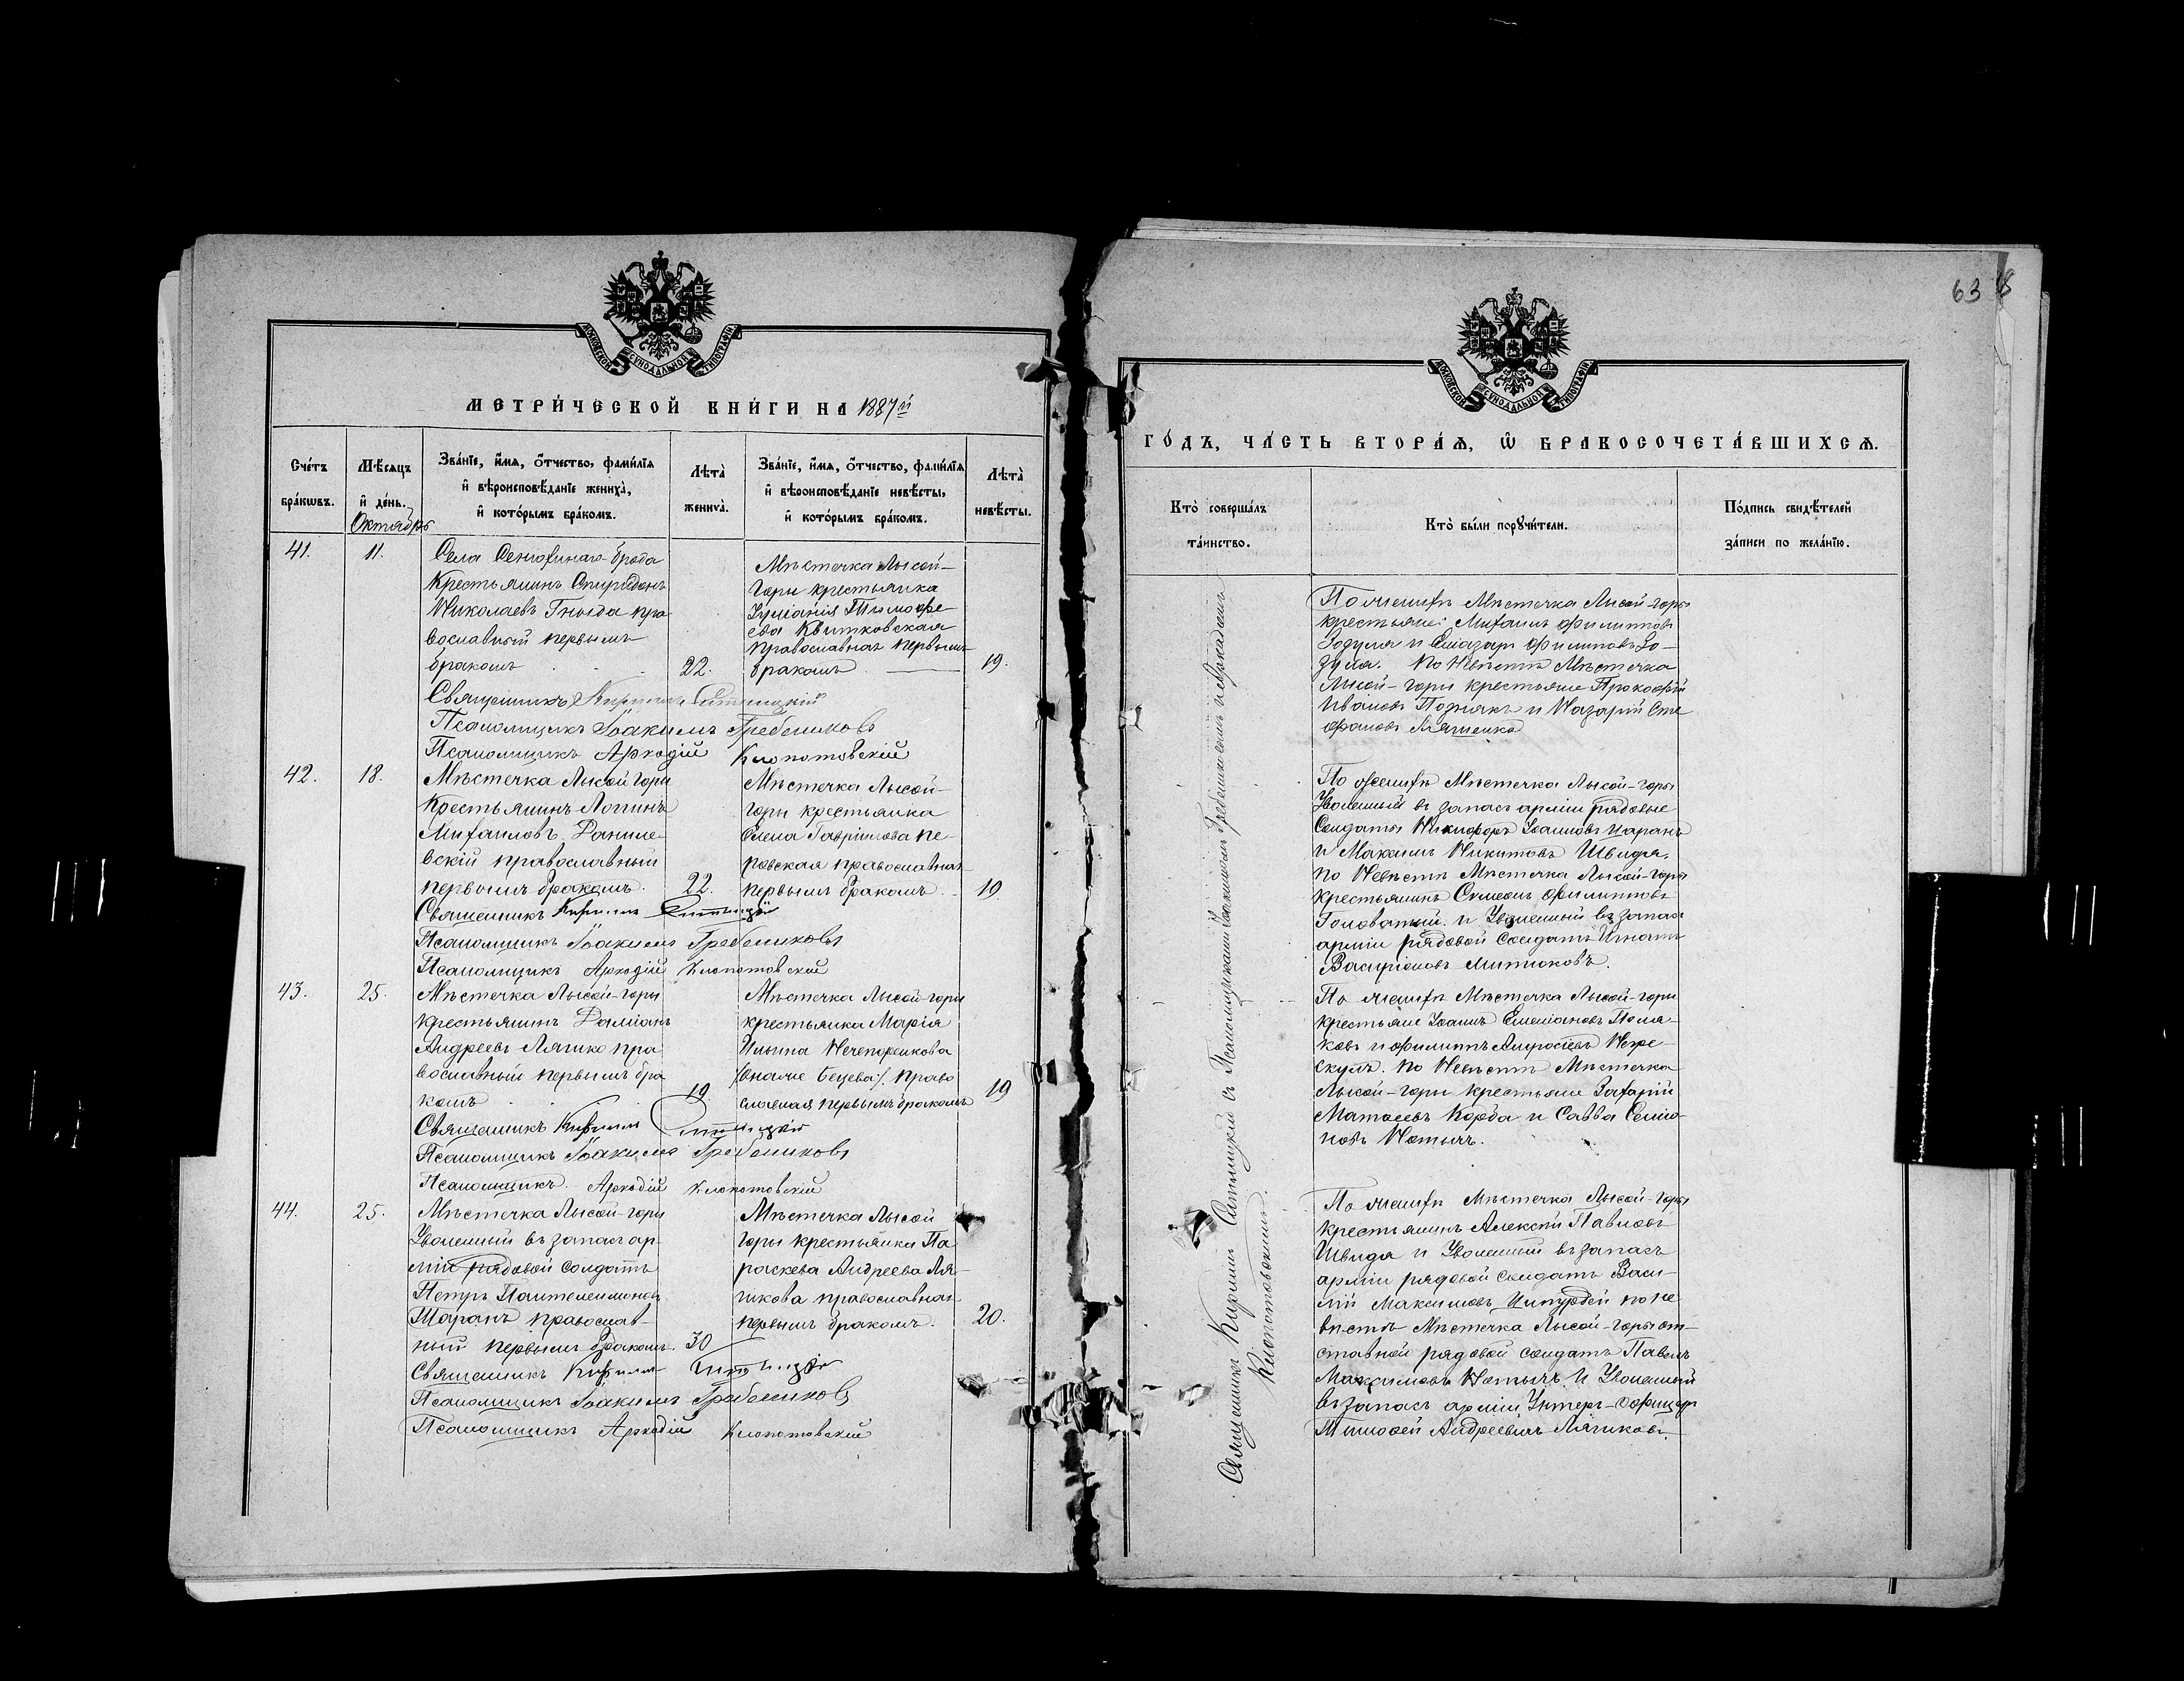 63
МОСКОВСКОЙ СѴНОДАЛЬНОЙ ТИПОГРАФІИ
МЕТРИ́ЧЕСКОЙ КНИ́ГИ НА 1887й
Сче́тъ бра́кѡвъ.
Мѣ́сяцъ и҆ де́нь.
Зва́нїе, и҆́мѧ, ѻ҆́тчество, фами́лїѧ и҆ вѣроисповѣ́данїе жениха̀, и҆ кото́рымъ бра́комъ.
Лѣта̀ жениха̀.
Зва́нїе, и҆́мѧ, ѻ҆́тчество, фами́лїѧ и҆ вѣроисповѣ́данїе невѣ́сты, и҆ кото́рымъ бра́комъ.
Лѣта̀ невѣ́сты.
Октябрь
41.
11.
Села Сенюхина-брода
Крестьянинъ Спиридонъ
Николаевъ Гныда пра
вославный первымъ
бракомъ
22.
Мѣстечка Лысой-
горы крестьянка
Іуліанія Тимофе
ева Квитковская
православная первымъ
бракомъ
19.
Священникъ Кириллъ
Псаломщикъ Іоакимъ Гребениковъ
Псаломщикъ Аркадій Клопотовскій
42.
18.
Мѣстечка Лысой горы
Крестьянинъ Логинъ
Михаиловъ Даниле
вскій православный
первымъ бракомъ.
22.
Мѣстечка Лысой-
горы крестьянка
Елена Гавріилова Пе-
ровская православная
первымъ бракомъ
19.
Священникъ Кириллъ
Псаломщикъ Іоакимъ Гребениковъ
Псаломщикъ Аркадій Клопотовскій
43.
25.
Мѣстечка Лысой-горы
крестьянинъ Даміанъ
Андреевъ Лячко пра
вославный первымъ бра
комъ
19
Мѣстечка Лысой-горы
крестьянка Марія
Ильина Нечепоренкова
/:иначе Бецева:/ право
славная первымъ бракомъ
19
Священникъ Кириллъ
Псаломщикъ Іоакимъ Гребениковъ
Псаломщикъ Аркадій Клопотовскій
44.
25.
Мѣстечка Лысой-горы
Уволенный въ запасъ ар
міи рядовой солдатъ
Петръ Пантелеимоновъ
Шаранъ православ-
ный первымъ бракомъ.
30
Мѣстечка Лысой
горы крестьянка Па
раскева Андреева Ля-
чкова православная
первымъ бракомъ.
20.
Священникъ Кириллъ
Псаломщикъ Іоакимъ Гребениковъ
Псаломщикъ Аркадій Клопотовскій
МОСКОВСКОЙ СѴНОДАЛЬНОЙ ТИПОГРАФІИ
ГО́ДЪ, ЧА́СТЬ ВТОРА́Ѧ, Ѡ҆ БРАКОСОЧЕТА́ВШИХСѦ.
Кто̀ соверша́лъ та́инство.
Кто̀ бы́ли порꙋчи́тели.
По́дпись свидѣ́телей за́писи по жела́нїю.
Священникъ Кириллъ съ Псаломщиками Іоакимомъ Гребениковымъ и Аркадіемъ
Клопотовскимъ.
По женихѣ Мѣстечка Лысой-горы
крестьяне: Михаилъ Филиповъ
Зозуля и Елазаръ Филиповъ Зо-
зуля. По Невѣстѣ Мѣстечка
Лысой-горы крестьяне Прокофій
Ивановъ Познякъ и Назарій Сте
фановъ Ляшенко
По женихѣ Мѣстечка Лысой-горы
Уволенный въ запасъ арміи рядовые
Солдаты Никифоръ Іоановъ Царанъ
и Максимъ Никитовъ Швидя.
По Невѣстѣ Мѣстечка Лысой-горы
крестьянинъ Симеонъ Филиповъ
Головатый и Уволенный въ запасъ
арміи рядовой солдатъ Игнатъ
Митюковъ.
По женихѣ Мѣстечка Лысой-горы
крестьяне Іоаннъ Емеліановъ Поля-
ковъ и Филиппъ Неже-
скулъ. По Невѣстѣ Мѣстечка
Лысой-горы крестьяне Захарій
Матвеевъ Корба и Савва Семіо-
новъ Нетычъ.
По женихѣ Мѣстечка Лысой-горы
крестьянинъ Алексѣй Павловъ
Швидя и Уволенный въ запасъ
арміи рядовой солдатъ Васи-
лій Максимовъ Ципурдей по Не
вѣстѣ Мѣстечка Лысой-горы от-
ставной рядовой солдатъ Павелъ
Максимовъ Нетычъ и Уволенный
въ запасъ арміи Унтеръ-Офицеръ
Тимофей Андреевичъ Лячковъ.